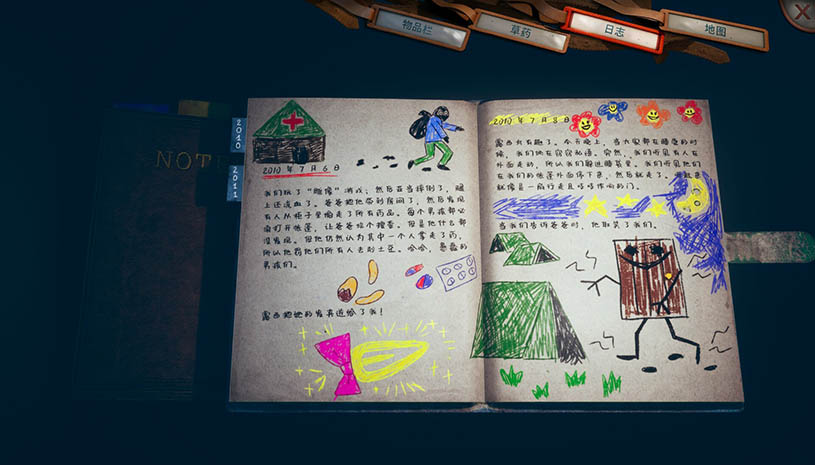 物品栏
草药
日志
地图
NOT
2010
2011
2010 年 7 月 6 日
我们玩了“雕像”游戏，然后
摔倒了，腿
上还流血了。爸爸把他带到房间了，然后发现
有人从柜子里偷走了所有药品。每个男孩都必
须打开帐篷，让爸爸挨个搜查。但是他什么都
没发现。但他仍然认为其中一个人拿走了药，
所以他罚他们所有人去削土豆。哈哈，愚蠢的
男孩们。
露西把她的发夹送给了我！
2010 年 7 月 8 日
露西太有趣了。今天晚上，当大家都在睡觉的时
候，我们俩在窃窃私语。突然，我们听见有人在
外面走的，所以我们躲进睡袋里。我们听见他们
在我们的帐篷外面停下来，然后就走了。
就像是一扇行走且吱吱作响的门。
当我们告诉爸爸时，他取笑了我们。